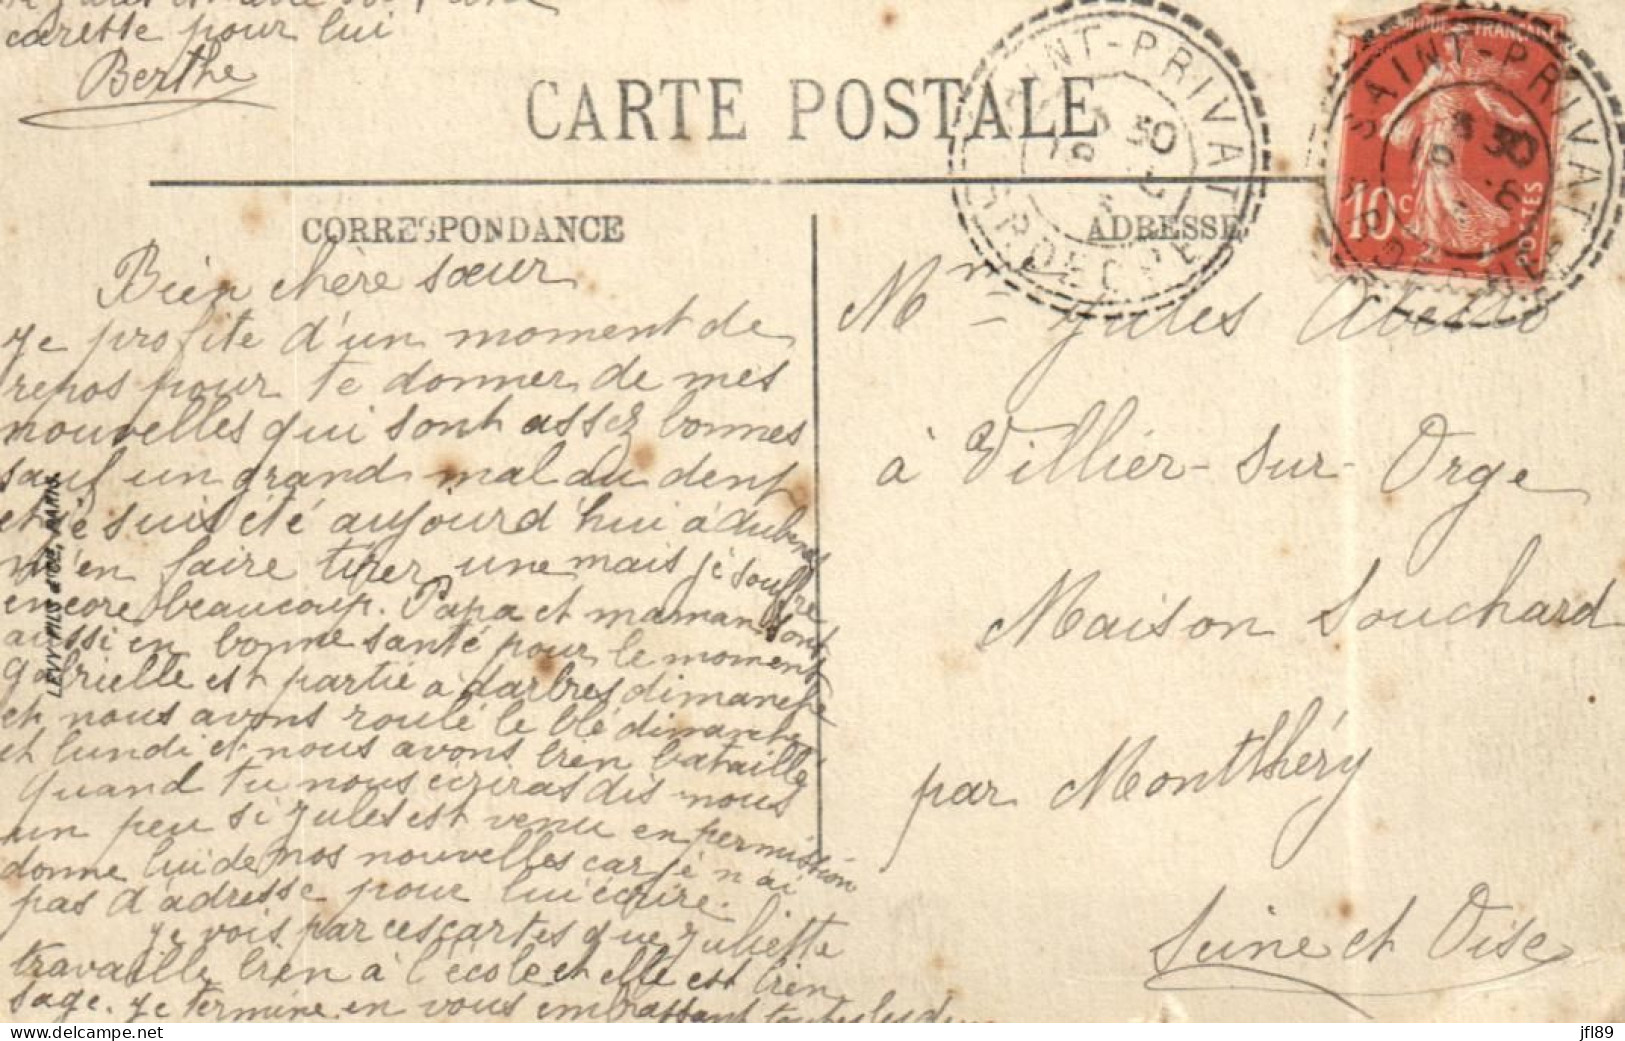 caresse pour lui
Berthe
CARTE POSTALE
CORRESPONDANCE
ADRESSE
SAINT-PRIVAT
ARDECHE
SAINT-PRIVAT
FRANÇAISE
10c
POSTES
Bien chère sœur
Je profite d'un moment de
repos pour te donner de mes
nouvelles qui sont assez bonnes
sauf un grand mal au dent
et je suis été aujourd'hui à Aubenas
m'en faire tirer une mais je souffre
encore beaucoup. Papa et maman sont
aussi en bonne santé pour le moment
gabrielle est partie a darbres dimanche
et nous avons roulé le blé dimanche
et lundi et nous avons bien bataillé
Quand tu nous écriras dis nous
un peu si Jules est venu en permission
donne lui de nos nouvelles car je n'ai
pas d'adresse pour lui écrire.
Je vois par ces cartes que Juliette
travaille bien à l'école et elle est bien
sage. Je termine en vous embrassant toutes les
LEVY FILS et Cie, PARIS
Mme Jules
à Villier-sur-Orge
Maison Souchard
par Montlhéry
Seine et Oise
jfl89